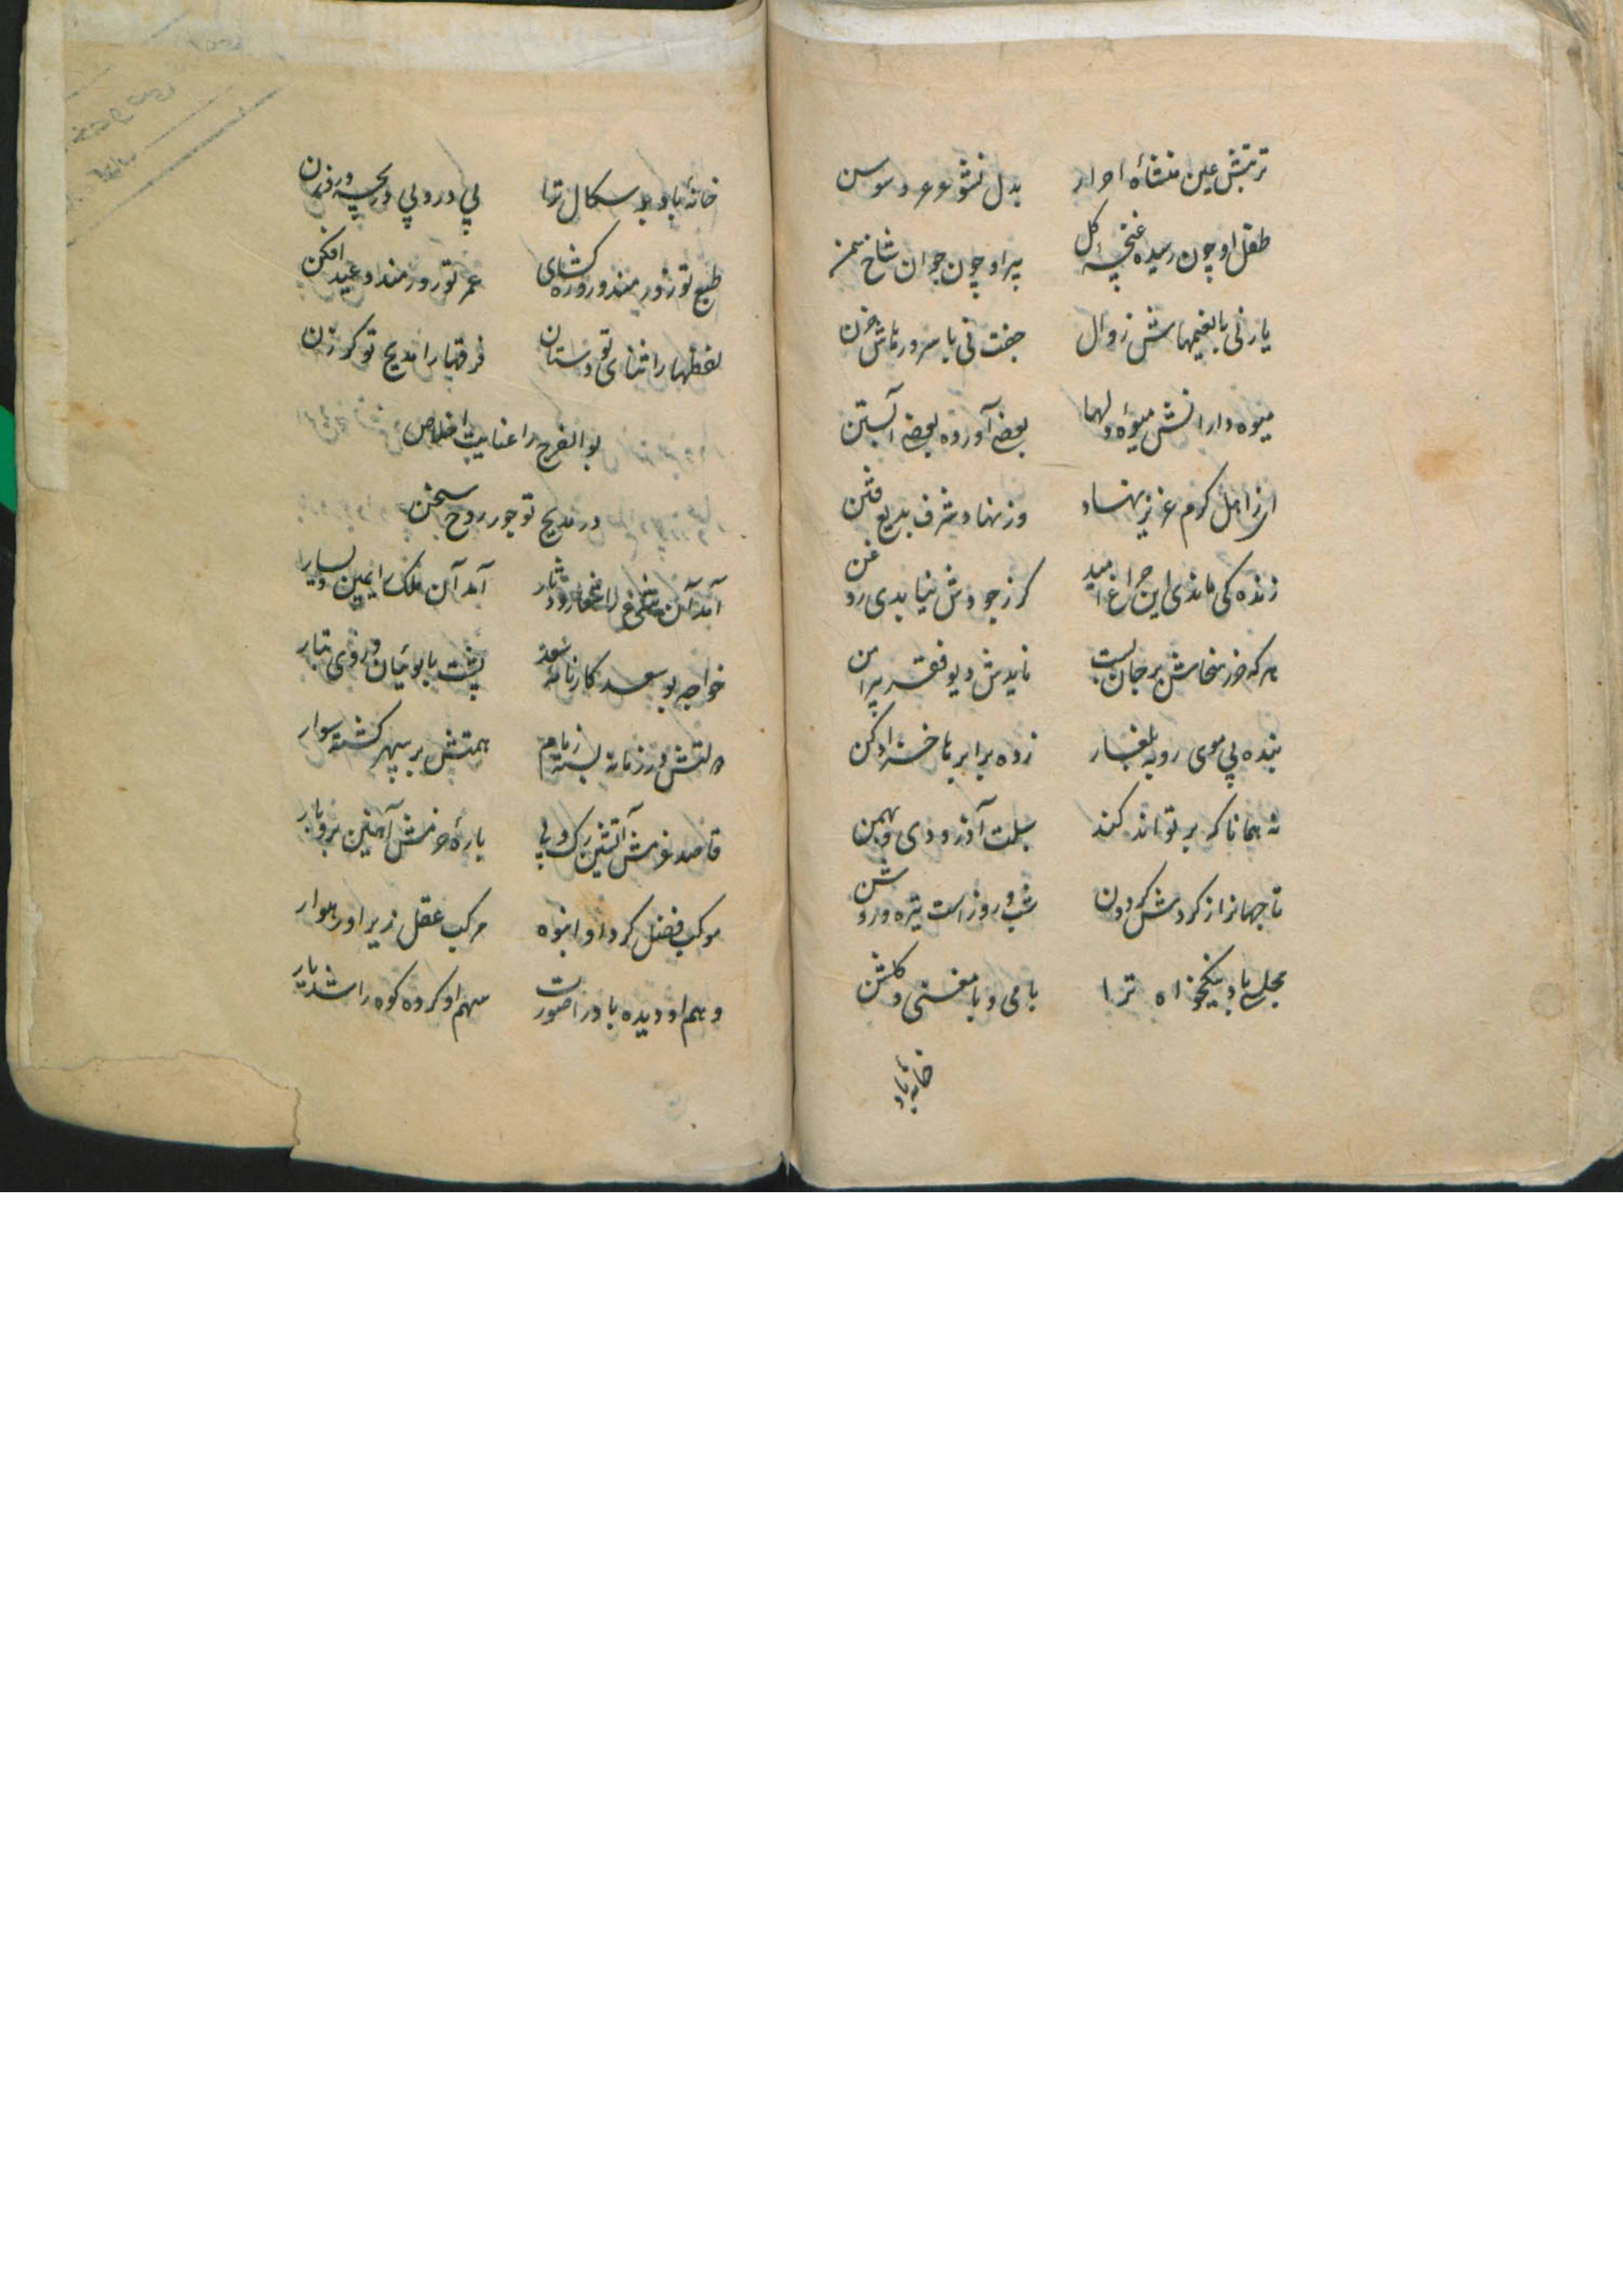 تربتش عین منشاء احرار بدل نشو سرو و سوسن
طفل او چون رسیده غنچه گل پیر او چون جوان شاخ سمن
یار نی با نعیمهاش زوال جفت نی با سرورهاش حزن
میوه دارانش میوه دلها بعضی آورده بعضی آبستن
از اهل کرم عزیز نهاد وز نهاد شرف بدیع فتن
زنده کی ماندی این چراغ امید کر ز جودش نیابدی روغن
هر که حرز سخاش بر جان بست نایدش دیو فقر پیرامن
بنده بی موی روبه بلغار زده برابر با خز ادکن
نه همانا که بر تواند کند سبلت آذر و دی و بهمن
تا جهانرا از کردش کردون شب و روز است تیره و روشن
مجلس باد نیکخواه ترا با می و با مغنی و کلشن
خانه باد
خانه باد بد سکال ترا بی در و بی دریچه و روزن
طبع تو زور مند و روزه کشای عمر تو روزمند و عید افکن
لفظها را ثنای تو دستان فرقها را مدیح تو کرزن
بوالفرج را عنایت اخلاص
در مدیح تو جور روح سخن
آمد آن اصل را شعار و دثار آمد آن ملک را یمین و یسار
خواجه بوسعد کارنامه سعد پشت بابوئیان و روی تبار
دولتش در زمانه بسته زمام همتش بر سپهر کشته سوار
قاصد عزمش آتشین رک و پی باره حزمش آهنین بر و بار
موکب فضل کرد او انبوه مرکب عقل زیر او رهوار
وهم او دیده باد را صورت سهم او کرده کوه را شدیار